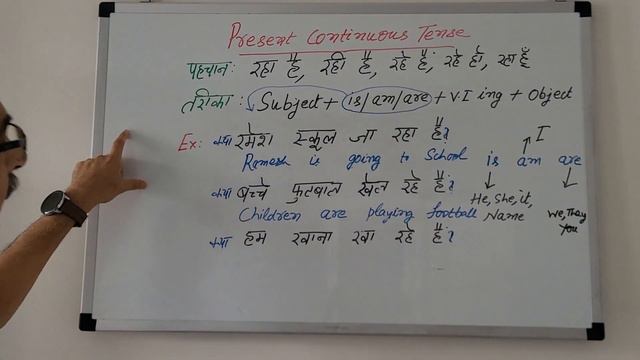 Present Continuous Tense
पहचान: रहा है, रही है, रहे हैं, रहे हो, रहा हूँ
तरीका: Subject + is/am/are + V.I ing + Object
Ex: क्या रमेश स्कूल जा रहा है?
I
Ramesh is going to School is am are
क्या बच्चे फुटबाल खेल रहे हैं?
He, She, it,
Children are playing football Name We, They
You
क्या हम खाना खा रहे हैं?